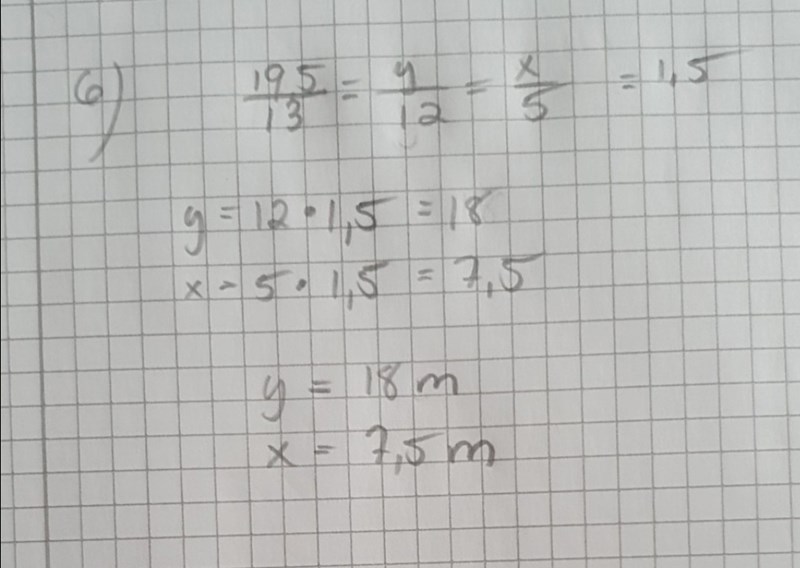 6) 195/13 = y/12 = x/5 = 1,5
y = 12 · 1,5 = 18
x = 5 · 1,5 = 7,5
y = 18 m
x = 7,5 m